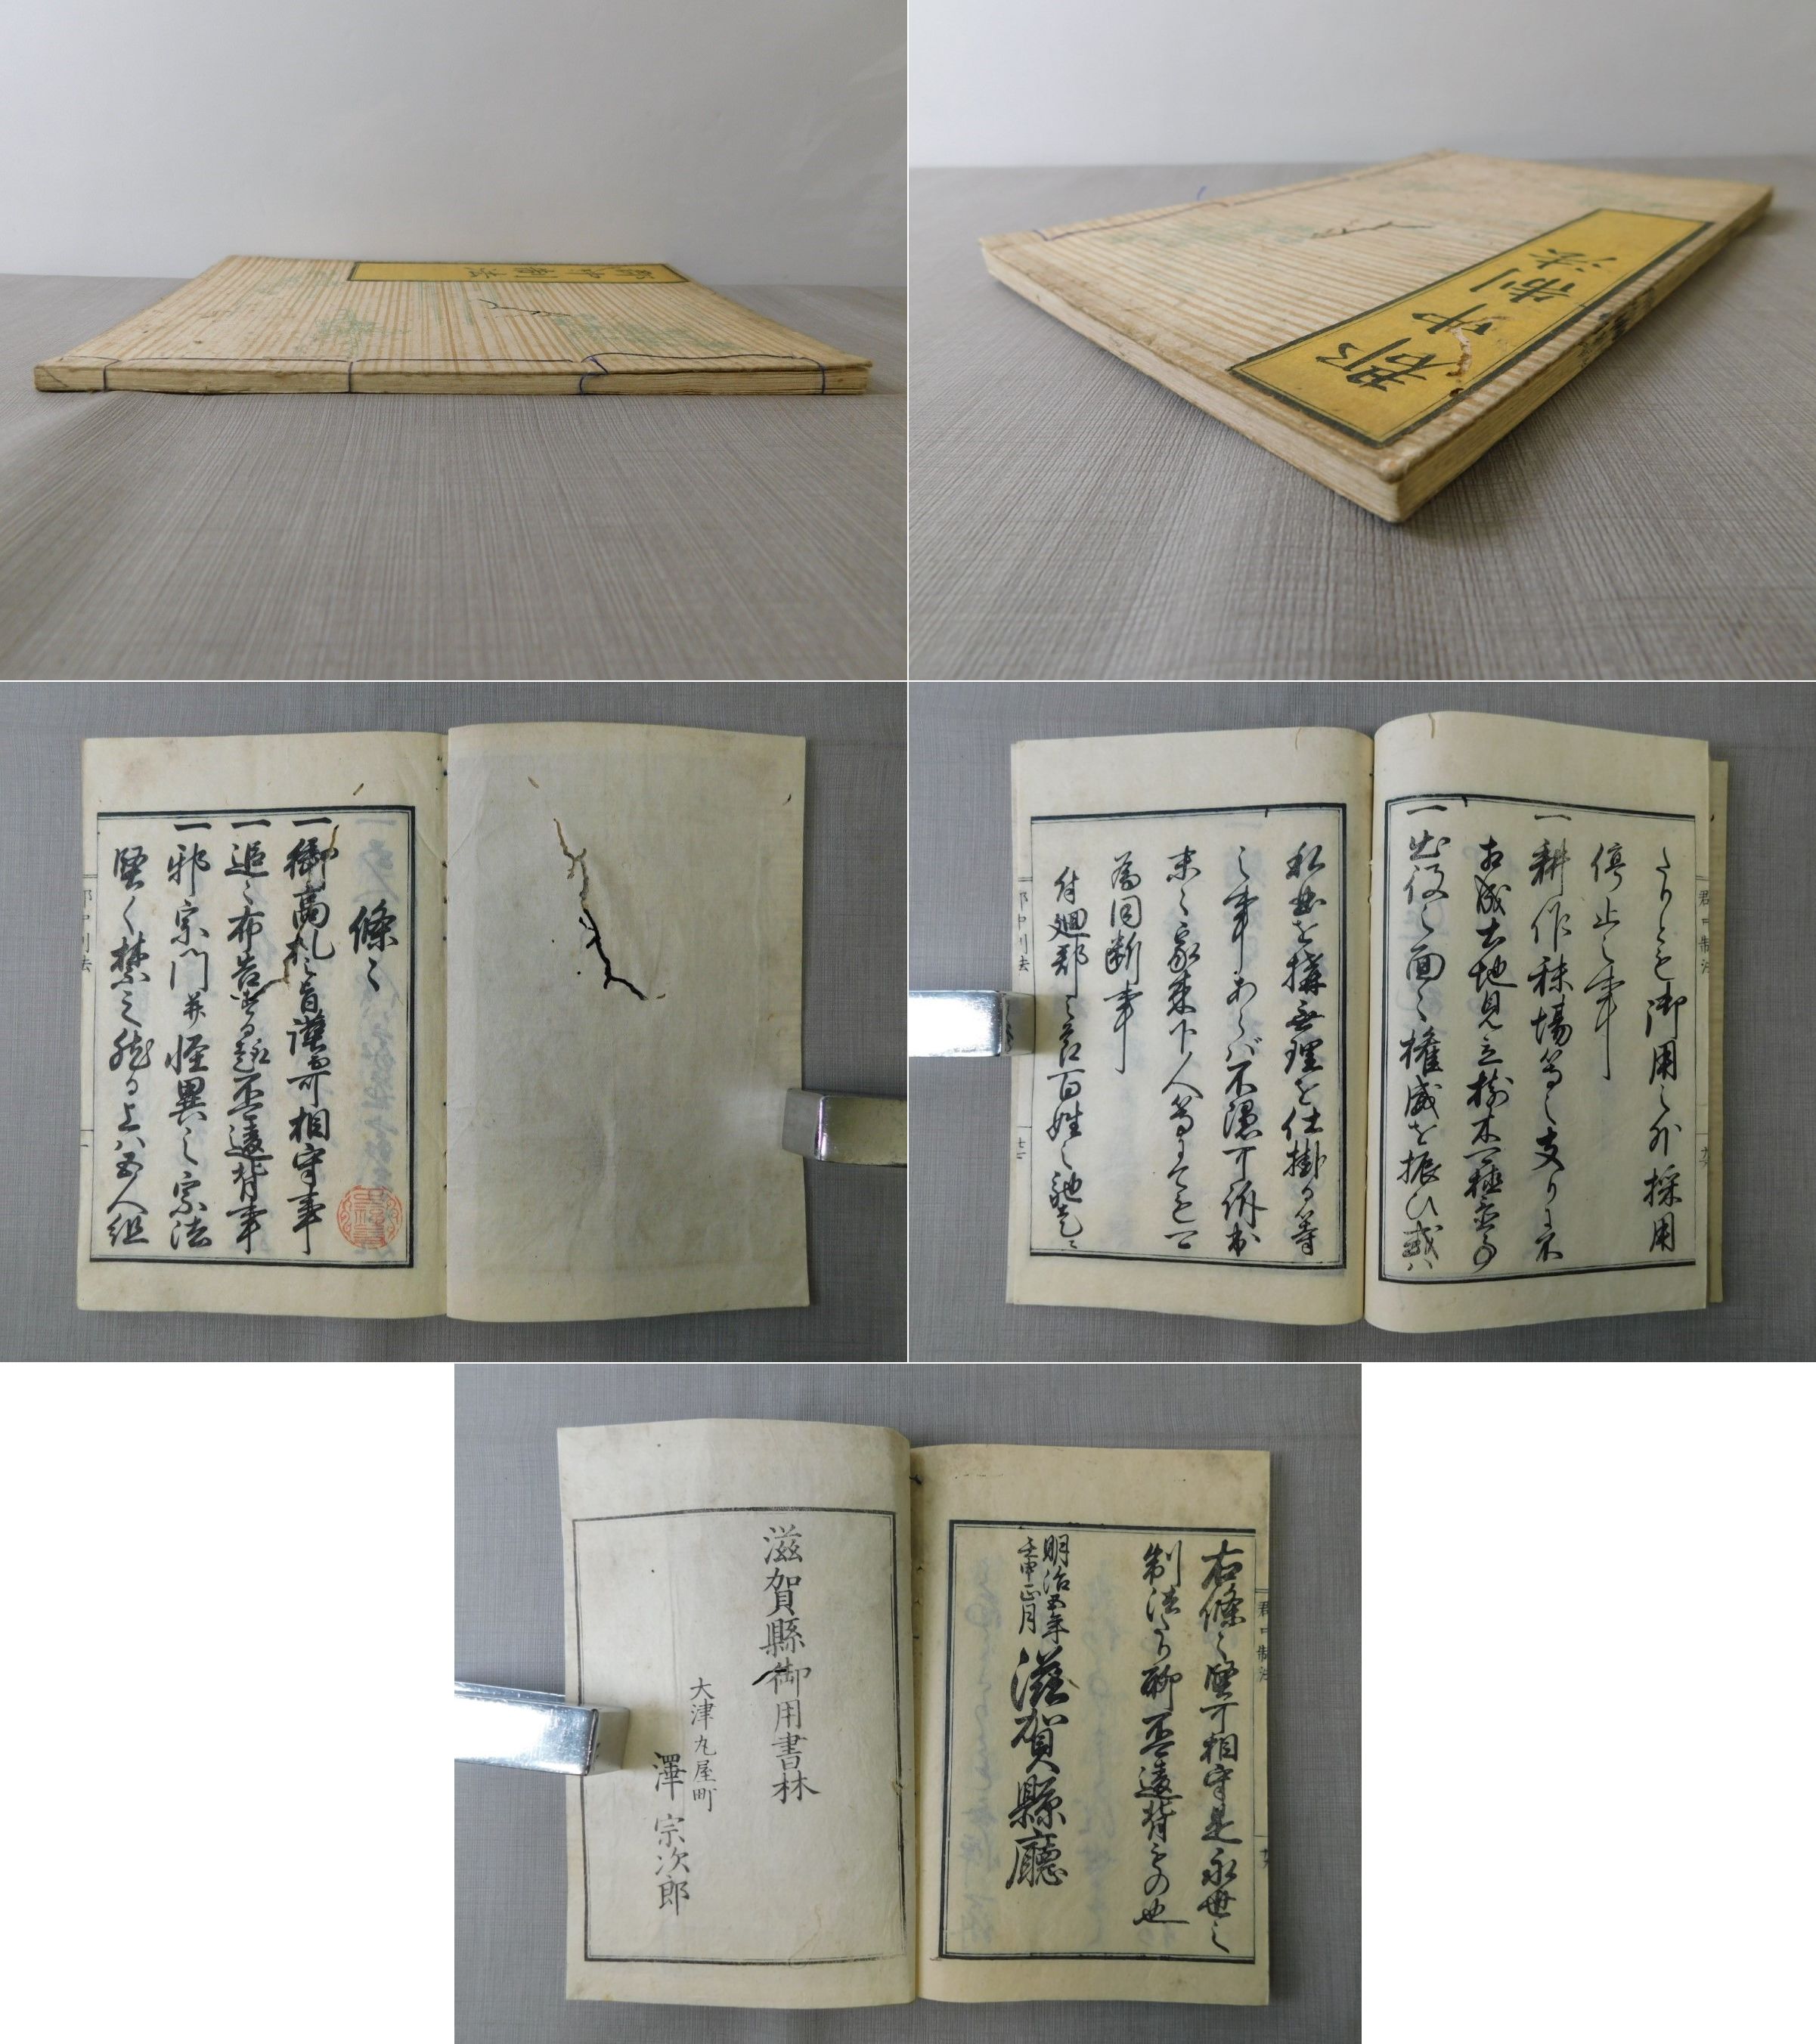 郡中制法
郡中制法
條々
一御高札之旨謹而可相守事
一追々布告する趣不可違背事
一邪宗門并怪異之宗法
堅く禁之然る上ハ五人組
郡中制法
たりとも御用之外採用
停止之事
一耕作秣場等之支りニ不
相成土地見立樹木可植立事
一出役之面々権威を振ひ或ハ
郡中制法
私曲を搆無理を仕掛る等
之事あらバ不憑可訴出
末々家来下人等にても可
為同断事
付廻郡之節百姓之馳走ニ
郡中制法
右條々堅可相守是永世之
制法たり聊不可違背もの也
明治五年
壬申正月
滋賀縣廳
郡中制法
滋賀縣御用書林
大津丸屋町
澤宗次郎